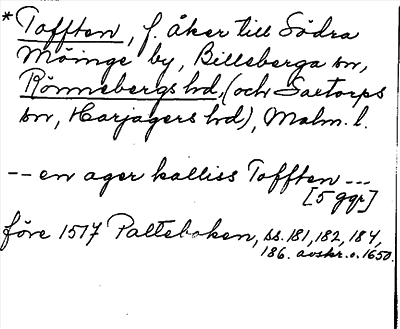 * Tofften, f. åker till Södra
Möinge by, Billeberga sn,
Rönnebergs hd, (och Saxtorps
sn, Harjagers hd), Malm. l.
-- en ager kalliss Tofften ---
[5 ggr]
före 1517 Palteboken, ss. 181, 182, 184,
186. avskr. o. 1650.